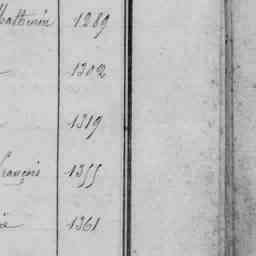 Mathurin 1289
1302
1319
françois 1355
1361